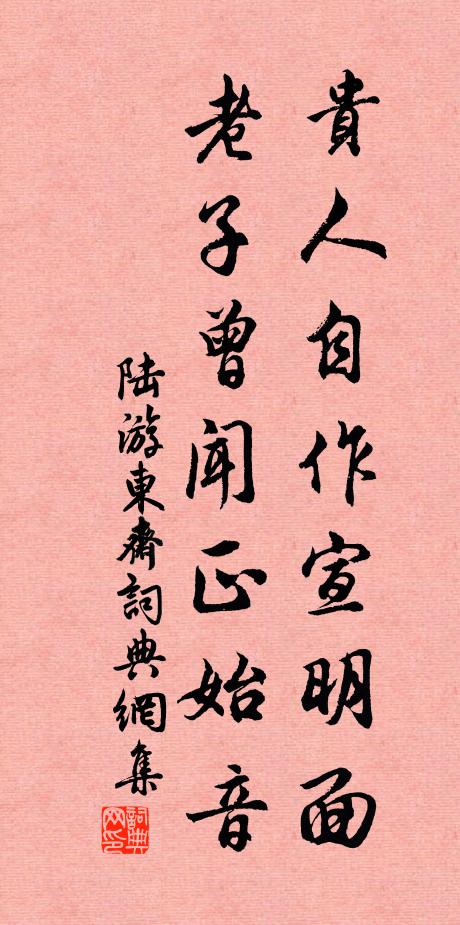 貴人自作宣明面
老子曾聞正始音
陆游東齋詞典網集
詞典网印